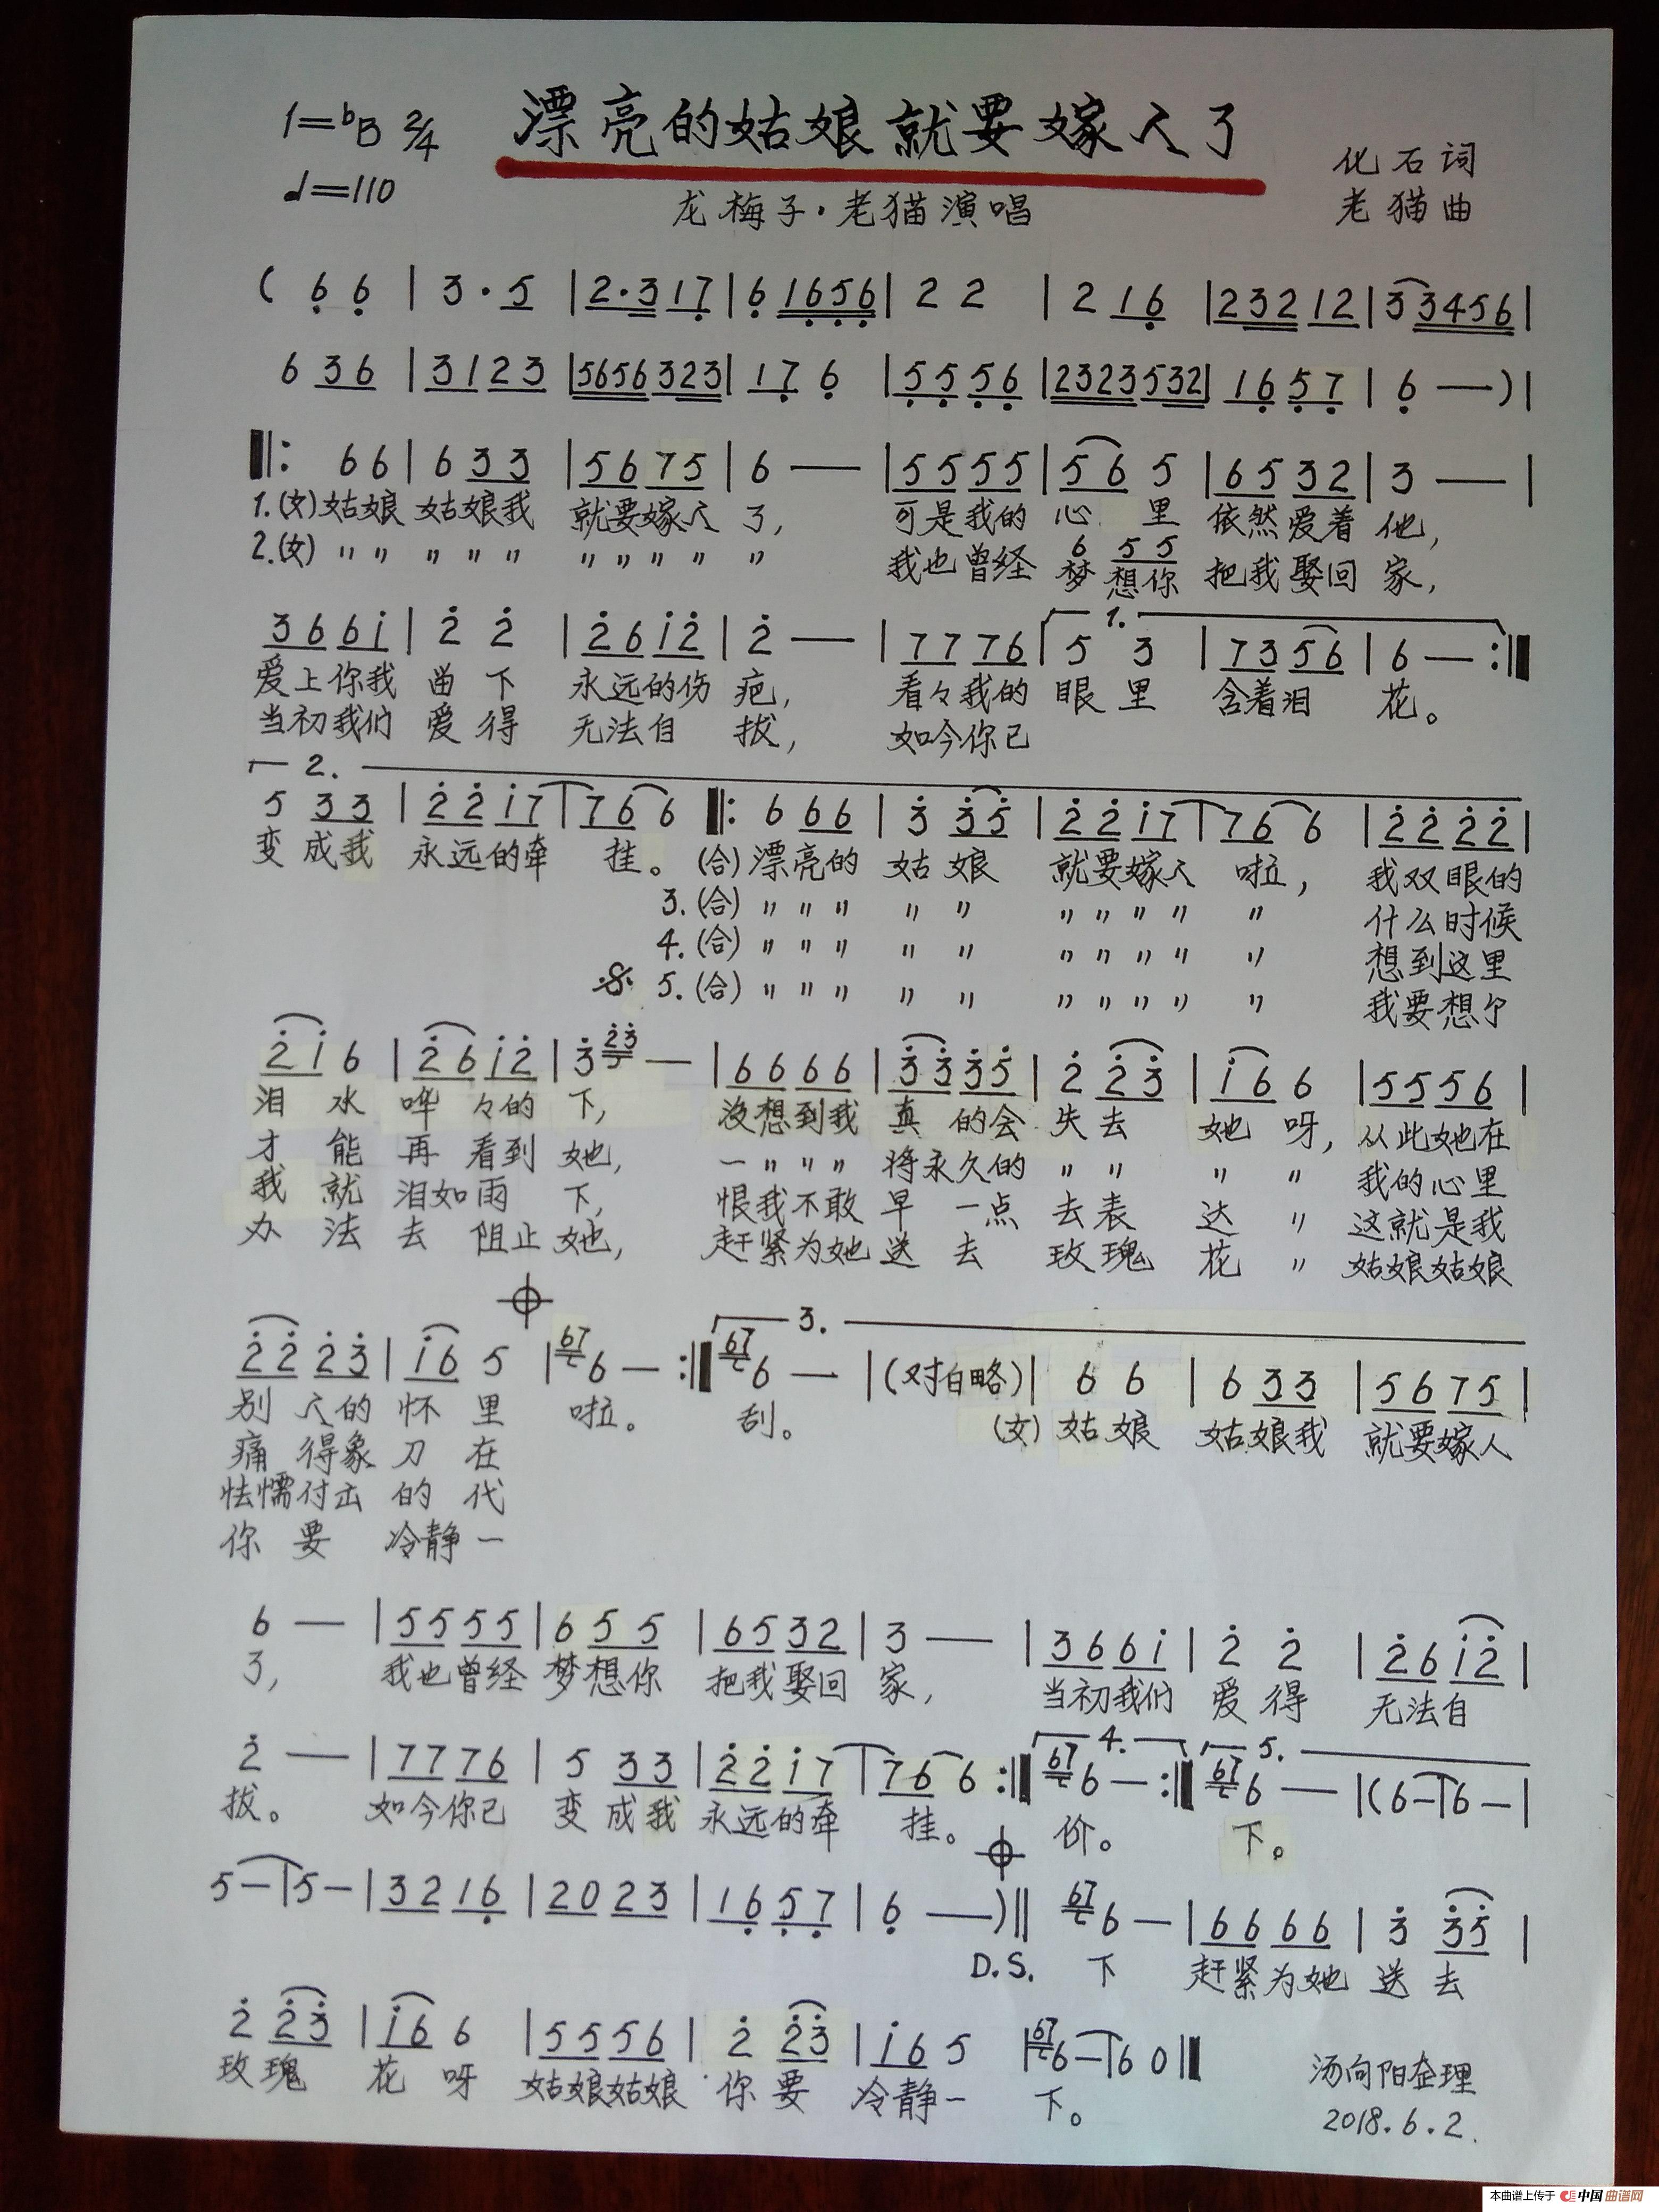 1=bB 2/4 漂亮的姑娘就要嫁人了
♩=110 龙梅子·老猫演唱 化石词
老猫曲
( 6 6 | 3 · 5 | 2·3 1 7 | 6 1656 | 2 2 | 2 1 6 | 232 12 | 3 3456 |
6 36 | 3123 | 5656 323 | 17 6 | 55 56 | 2323 532 | 16 57 | 6 — ) |
‖: 66 | 6 33 | 56 75 | 6 — | 55 55 | 56 5 | 65 32 | 3 — |
1.(女)姑娘 姑娘我 就要嫁人 了, 可是我的 心 里 依然爱着 他,
6 55
2.(女) 〃〃 〃〃〃 〃〃〃〃 〃 我也曾经 梦想你 把我娶回 家,
36 6i | 2 2 | 26 i2 | 2 — | 77 76 | 1. 5 3 | 73 56 | 6 — :‖
爱上你我 留下 永远的伤 疤, 看々我的 眼里 含着泪 花。
当初我们 爱得 无法自 拔, 如今你已
2.
5 33 | 22 i7 | 76 6 ‖: 6 66 | 3 35 | 22 i7 | 76 6 | 22 22 |
变成我 永远的牵 挂。 (合)漂亮的 姑娘 就要嫁人 啦, 我双眼的
3.(合) 〃〃〃 〃〃 〃〃〃〃 〃 什么时候
4.(合) 〃〃〃 〃〃 〃〃〃〃 〃 想到这里
5.(合) 〃〃〃 〃〃 〃〃〃〃 〃 我要想个
2i 6 | 26 i2 | 3 23 — | 66 66 | 33 35 | 2 23 | i6 6 | 55 56 |
泪 水 哗々的 下, 没想到我 真 的会 失去 她 呀, 从此她在
才 能 再 看到 她, 一〃〃〃 将永久的 〃〃 〃 〃 我的心里
我 就 泪如雨 下, 恨我不敢 早 一点 去表 达 〃 这就是我
办 法 去 阻止 她, 赶紧为她 送 去 玫瑰 花 〃 姑娘姑娘
22 23 | i6 5 | 67 6 — :‖ 3. 67 6 — | (对白略) | 6 6 | 6 33 | 56 75 |
别 人的 怀 里 啦。 刮。 (女) 姑娘 姑娘我 就要嫁人
痛 得象 刀 在
怯懦付出 的 代
你 要 冷静一
6 — | 55 55 | 6 55 | 65 32 | 3 — | 36 6i | 2 2 | 26 i2 |
了, 我也曾经 梦想你 把我娶回 家, 当初我们 爱得 无法自
2 — | 77 76 | 5 33 | 22 i7 | 76 6 :‖ 4. 67 6 — :‖ 5. 67 6 — | (6 — | 6 — |
拔。 如今你已 变成我 永远的牵 挂。 价。 下。
5 — | 5 — | 32 16 | 20 23 | 16 57 | 6 — ) ‖ 67 6 — | 66 66 | 3 35 |
D.S. 下 赶紧为她 送去
2 23 | i6 6 | 55 56 | 2 23 | i6 5 | 67 6 — | 6 0 ‖
玫瑰 花 呀 姑娘姑娘 你要 冷静一 下。
汤向阳整理
2018.6.2.
本曲谱上传于 中国曲谱网